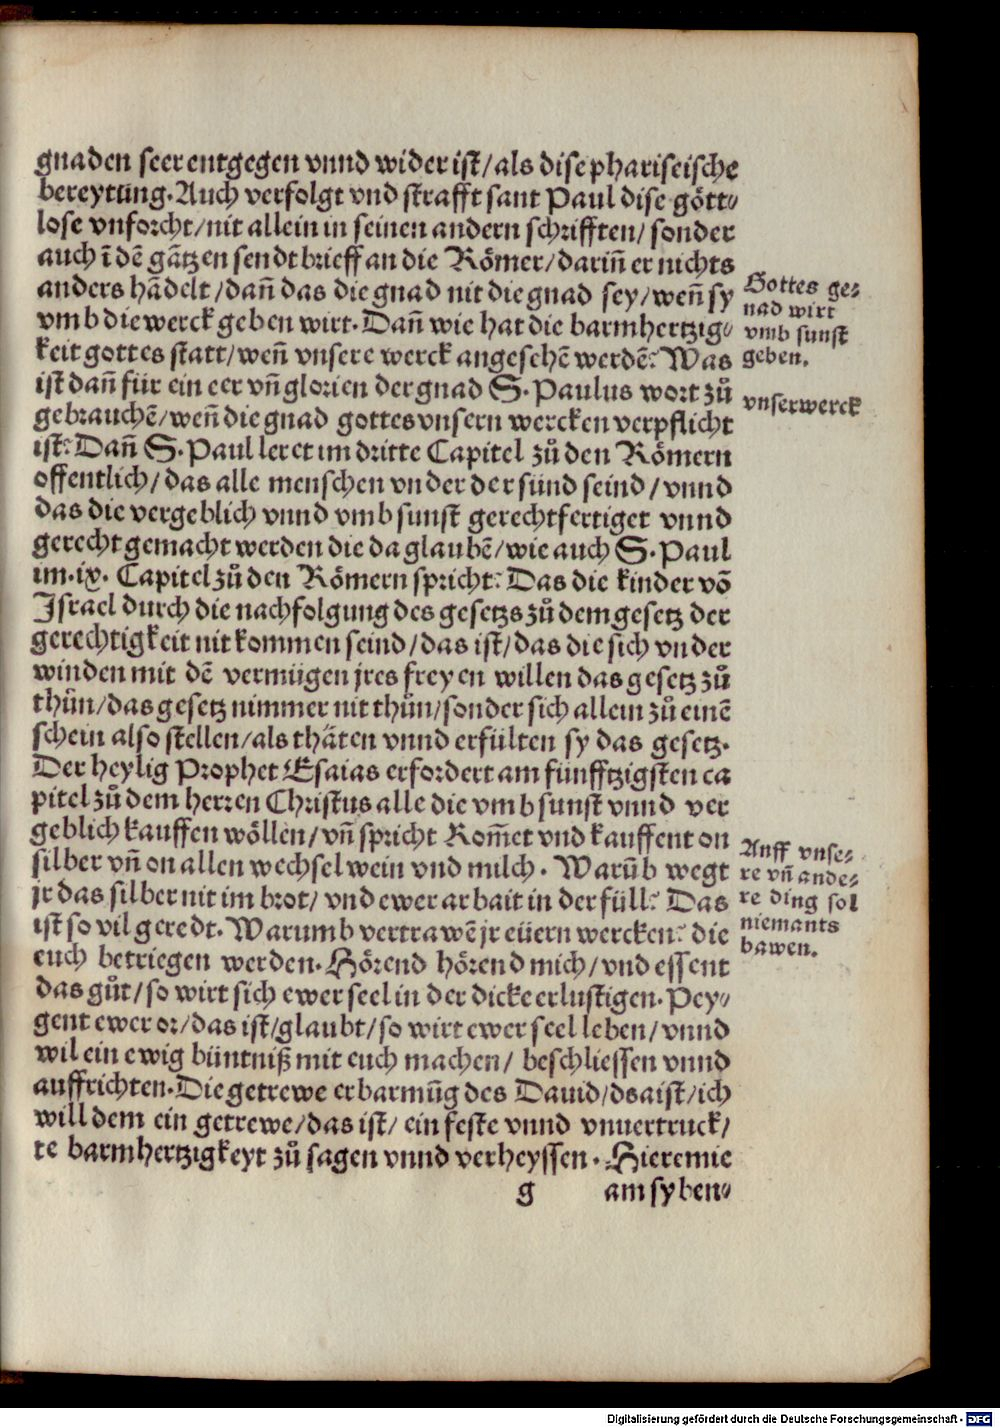 gnaden seer entgegen vnnd wider ist/als dise phariseische
bereytung. Auch verfolgt vnd strafft sant Paul dise gött⸗
lose vnforcht/nit allein in seinen andern schrifften/ sonder
auch ī dē gātzen sendtbrieff an die Römer/darin̄ er nichts
anders hādelt/dan̄ das die gnad nit die gnad sey/wen̄ sy
vmb die werck geben wirt. Dan̄ wie hat die barmhertzig⸗
keit gottes statt/wen̄ vnsere werck angesehē werdē? Was
ist dan̄ für ein eer vn̄ glorien der gnad S. Paulus wort zů
gebrauchē/wen̄ die gnad gottes vnsern wercken verpflicht
ist? Dan̄ S. Paul leret im dritte Capitel zů den Römern
offentlich/das alle menschen vnder der sünd seind/vnnd
das die vergeblich vnnd vmb sunst gerechtfertiget vnnd
gerecht gemacht werden die da glaubē/wie auch S. Paul
im.ix. Capitel zů den Römern spricht: Das die kinder vō
Israel durch die nachfolgung des gesetzs zů dem gesetz der
gerechtigkeit nit kommen seind/das ist/das die sich vnder
winden mit dē vermügen jres freyen willen das gesetz zů
thůn/das gesetz nimmer nit thůn/sonder sich allein zů einē
schein also stellen/als thäten vnnd erfülten sy das gesetz.
Der heylig Prophet Esaias erfordert am fünfftzigsten ca
pitel zů dem herren Christus alle die vmb sunst vnnd ver
geblich kauffen wöllen/vn̄ spricht Kom̄et vnd kauffent on
silber vn̄ on allen wechsel wein vnd milch. Warūb wegt
jr das silber nit im brot/ vnd ewer arbait in der füll? Das
ist so vil geredt. Warumb vertrawē jr eüern wercken? die
euch betriegen werden. Hörend hörend mich/vnd essent
das gůt/so wirt sich ewer seel in der dicke erlustigen. Pey⸗
gent ewer or/das ist/glaubt/so wirt ewer seel leben/vnnd
wil ein ewig büntniß mit euch machen/ beschliessen vnnd
auffrichten. Die getrewe erbarmūg des Dauid/dsaist/ich
will dem ein getrewe/das ist/ ein feste vnnd vnuertruck/
te barmhertzigkeyt zů sagen vnnd verheyssen. Hieremie
g am syben⸗
Gottes ge⸗
nad wirt
vmb sunst
geben.
vnser werck
Auff vnse⸗
re vn̄ ande⸗
re ding sol
niemants
bawen.
Digitalisierung gefördert durch die Deutsche Forschungsgemeinschaft - DFG